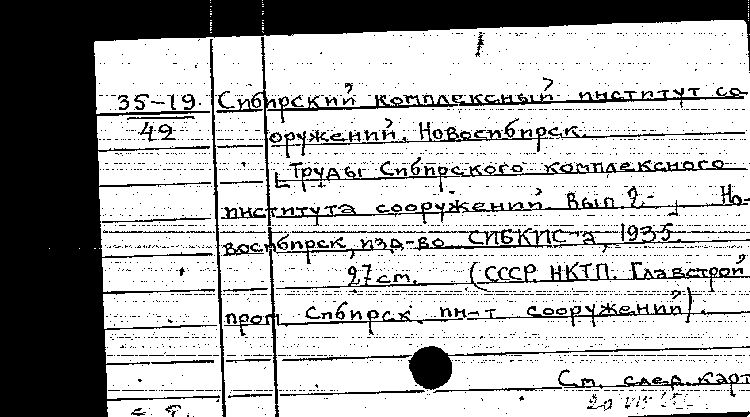 35-19 Сибирский комплексный институт со-
49 оружений. Новосибирск.
[Труды Сибирского комплексного
института сооружений. Вып. 2- , Но-
восибирск, изд-во СИБКИС-а, 1935.
27 см. (СССР. НКТП. Главстрой
пром. Сибирск. ин-т сооружений).
См. след. карт